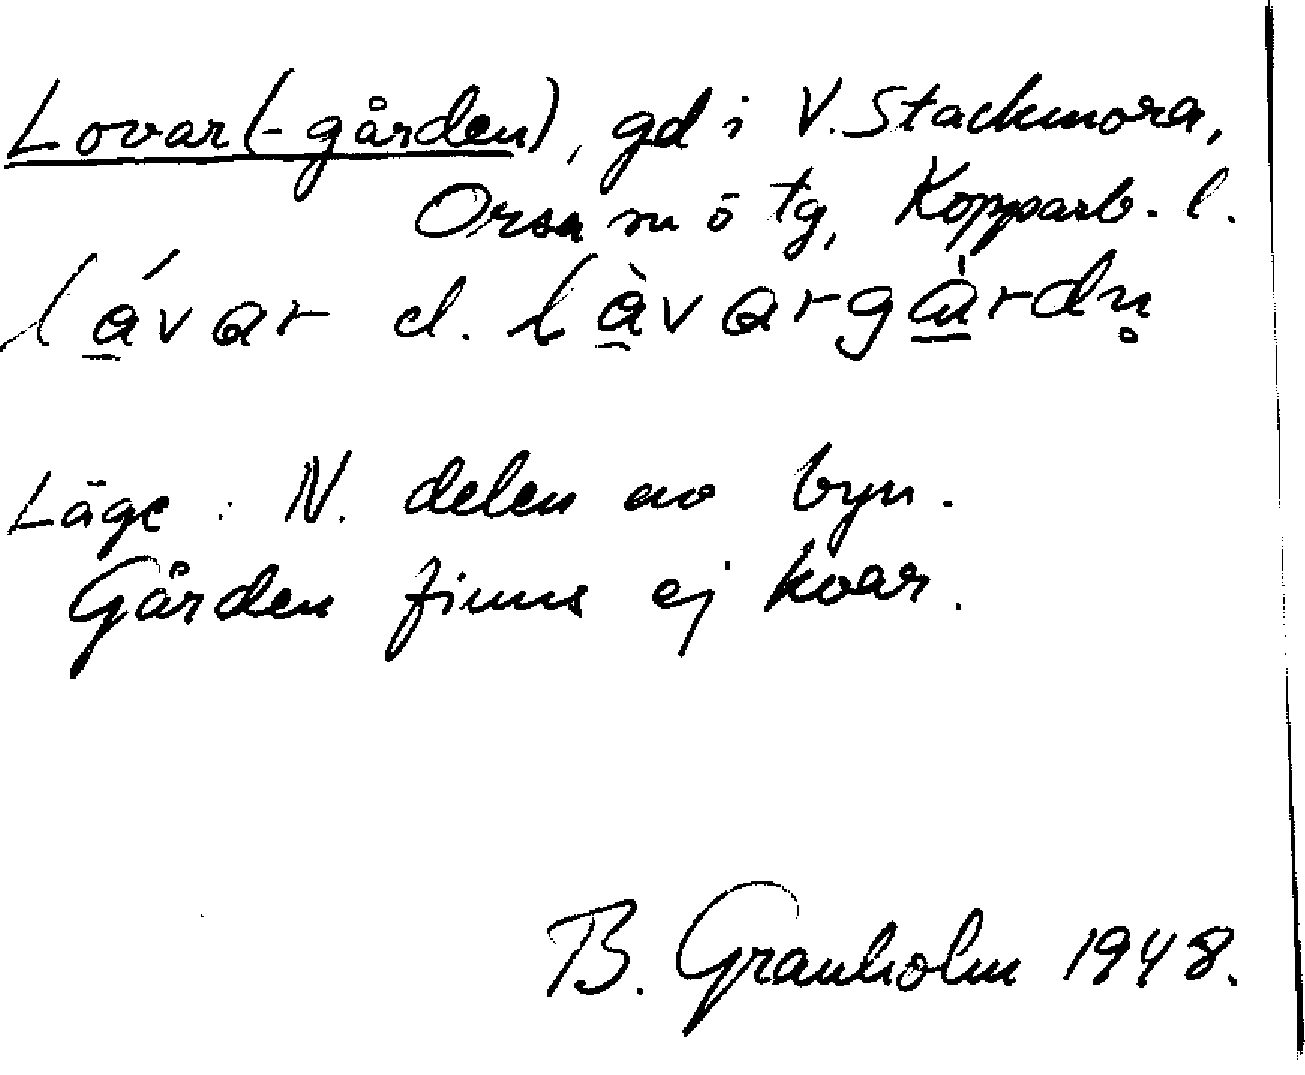 Lovar(-gården), gd i V. Stackmora,
Orsa sn ö tg, Kopparb. l.
lávar el. làvargàrdn̥
Läge: N. delen av byn.
Gården finns ej kvar.
B. Granholm 1948.